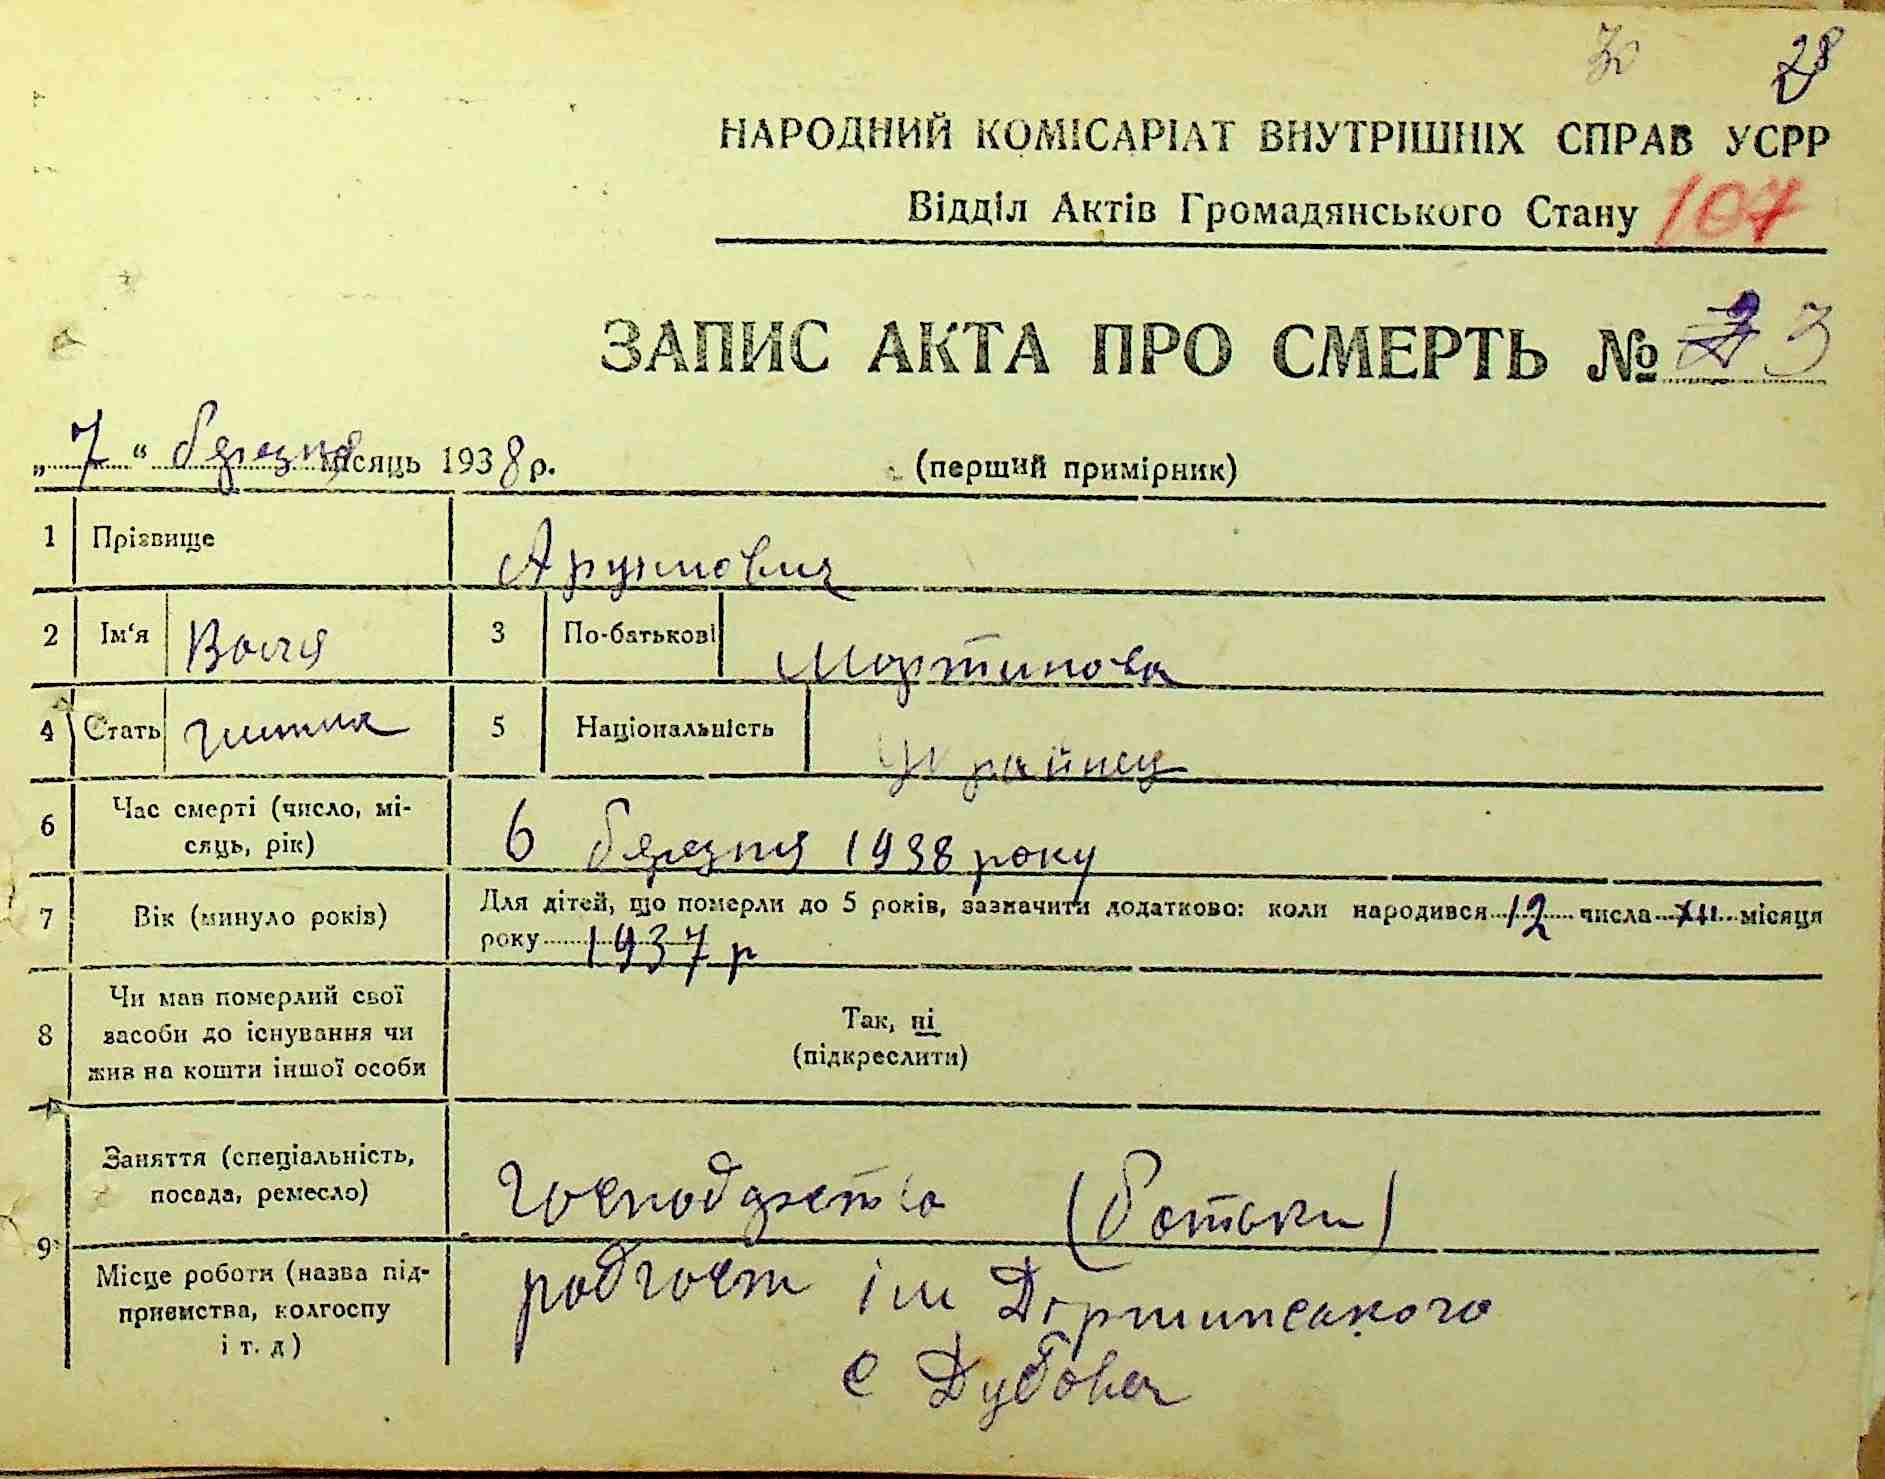 28
НАРОДНИЙ КОМІСАРІАТ ВНУТРІШНІХ СПРАВ УСРР
Відділ Актів Громадянського Стану 107
ЗАПИС АКТА ПРО СМЕРТЬ № 3
„7“ березня місяць 1938 р. (перший примірник)
1 Прізвище
2 Ім‘я Валя 3 По-батькові Мартинова
4 Стать 5 Національність
6 Час смерті (число, мі-
сяць, рік) 6 березня 1938 року
7 Вік (минуло років) Для дітей, що померли до 5 років, зазначити додатково: коли народився 12 числа XII місяця
року 1937 р
8 Чи мав померлий свої
засоби до існування чи
жив на кошти іншої особи
Так, ні
(підкреслити)
9 Заняття (спеціальність,
посада, ремесло)
(батьки)
Місце роботи (назва під-
приємства, колгоспу
і т. д)
радгосп ім Держинського
с Дубова